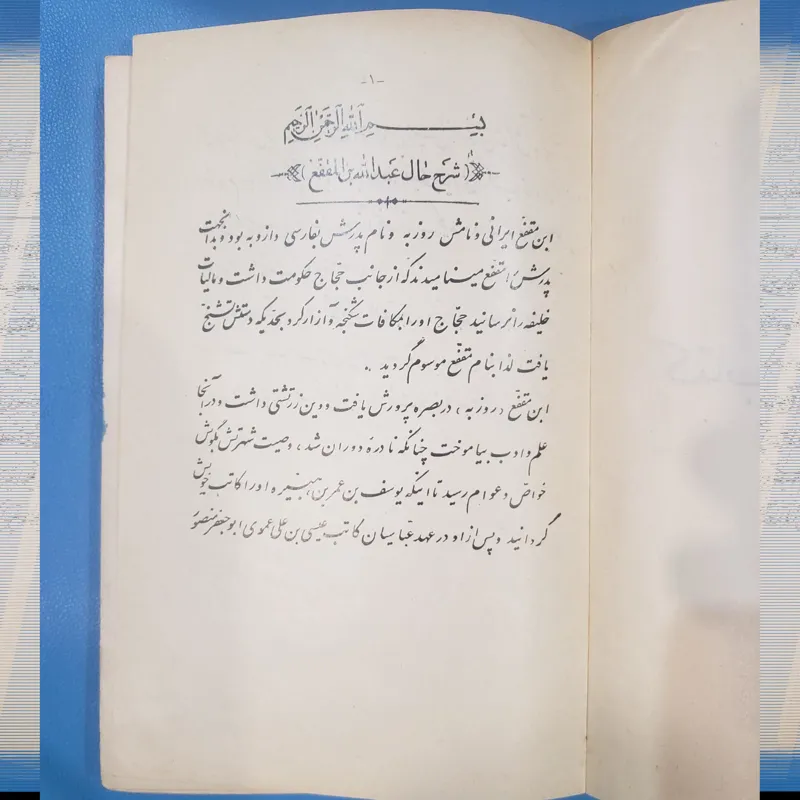 -۱-
بسم الله الرحمن الرحیم
(شرح حال عبدالله بن المقفع)
ابن مقفع ایرانی و نامش روزبه و نام پدرش بفارسی دازویه بود و بدانجهت
پدرش را مقفع مینامیدند که از جانب حجّاج حکومت داشت و مالیات
خلیفه را نرسانید حجّاج او را بمکافات شکنجه و آزار کرد بحدیکه دستش تشنج
یافت لذا بنام مقفع موسوم گردید ..
ابن مقفع (روزبه) در بصره پرورش یافت و دین زرتشتی داشت و در آنجا
علم و ادب بیاموخت چنانکه نادره دوران شد، وصیت شهرتش بگوش
خواصّ و عوام رسید تا اینکه یوسف بن عمر بن هبیره او را کاتب خویش
گردانید و پس از او در عهد عبّاسیان کاتب عیسی بن علی عموی ابوجعفر منصور